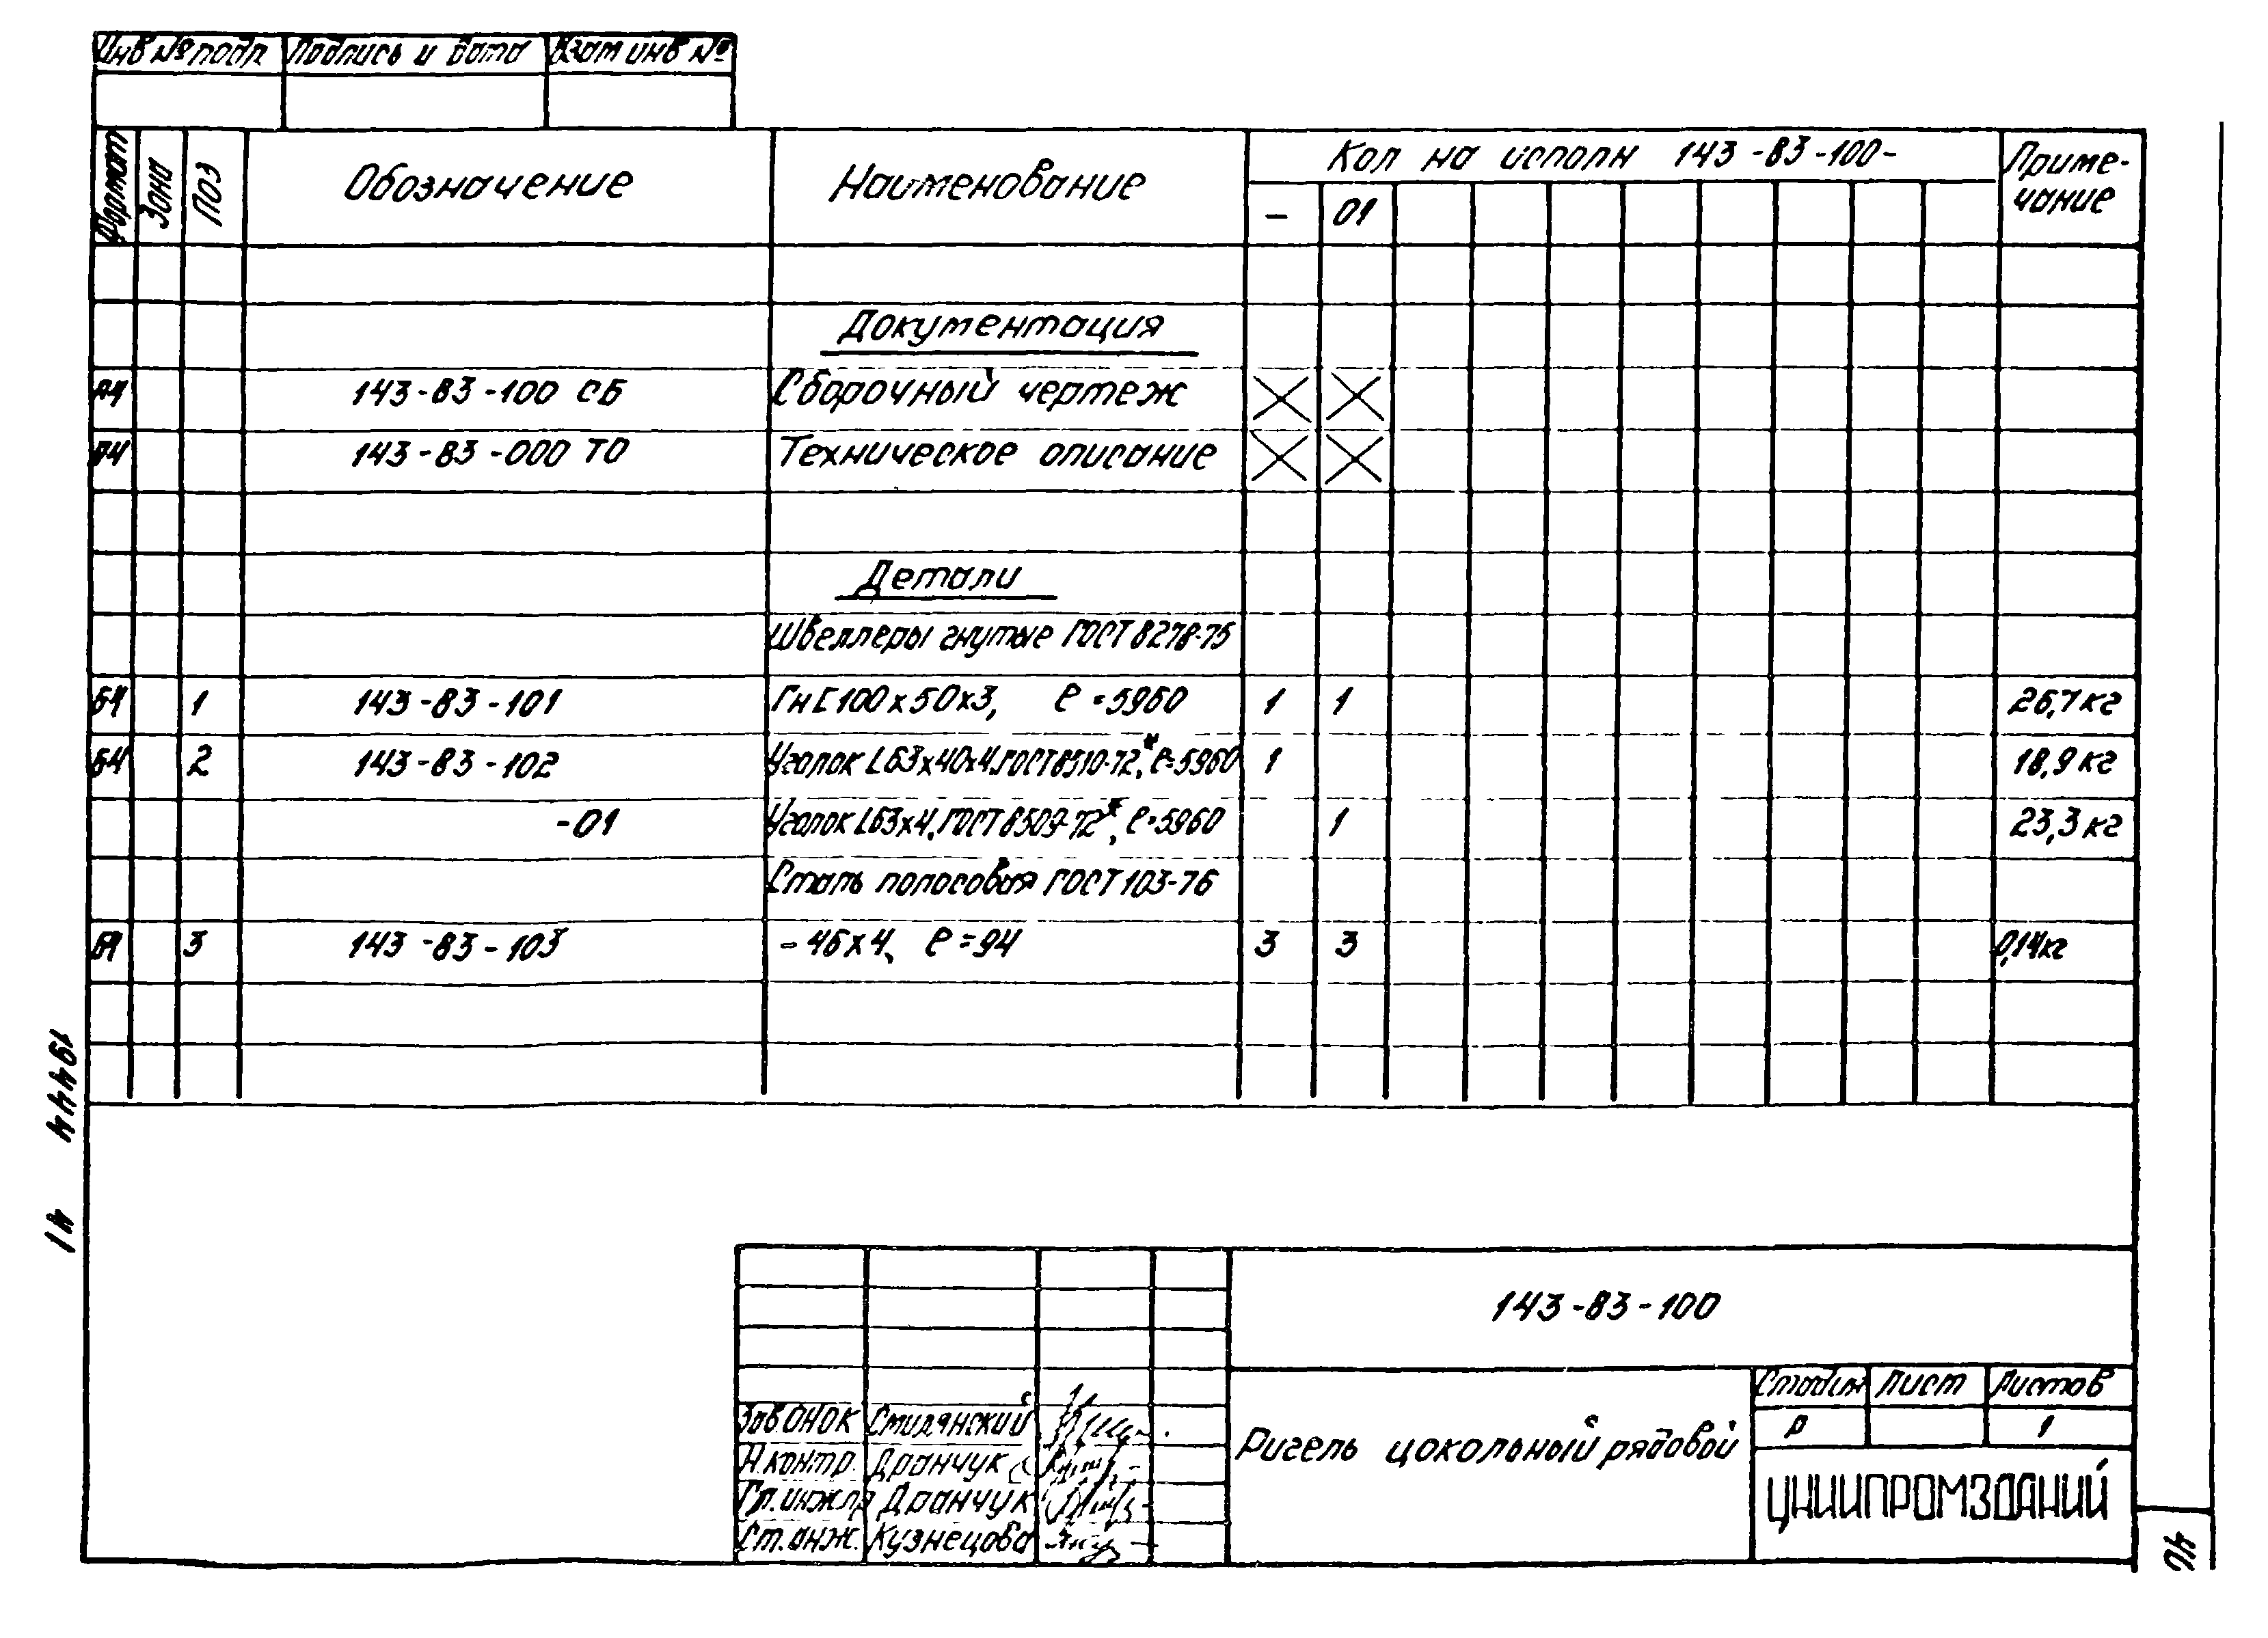 Инв № подл Подпись и дата Взам инв №
Формат Зона Поз Обозначение Наименование Кол на исполн 143-83-100- Приме-
чание
- 01
Документация
А4 143-83-100 СБ Сборочный чертеж
А4 143-83-000 ТО Техническое описание
Детали
Швеллеры гнутые ГОСТ 8278-75
БЧ 1 143-83-101 Гн [ 100х50х3, ℓ=5960 1 1 26,7 кг
БЧ 2 143-83-102 Уголок L63х40х4, ГОСТ 8510-72*, ℓ=5960 1 18,9 кг
-01 Уголок L63х4, ГОСТ 8509-72*, ℓ=5960 1 23,3 кг
Сталь полосовая ГОСТ 103-76
БЧ 3 143-83-103 -46х4, ℓ=94 3 3 0,14 кг
19444 41
143-83-100
Стадия Лист Листов
Р 1
Зав.ОНОК Смилянский
Н.контр. Дранчук
Гл.инж.пр Дранчук
Ст.инж. Кузнецова
Ригель цокольный рядовой
ЦНИИПРОМЗДАНИЙ
40